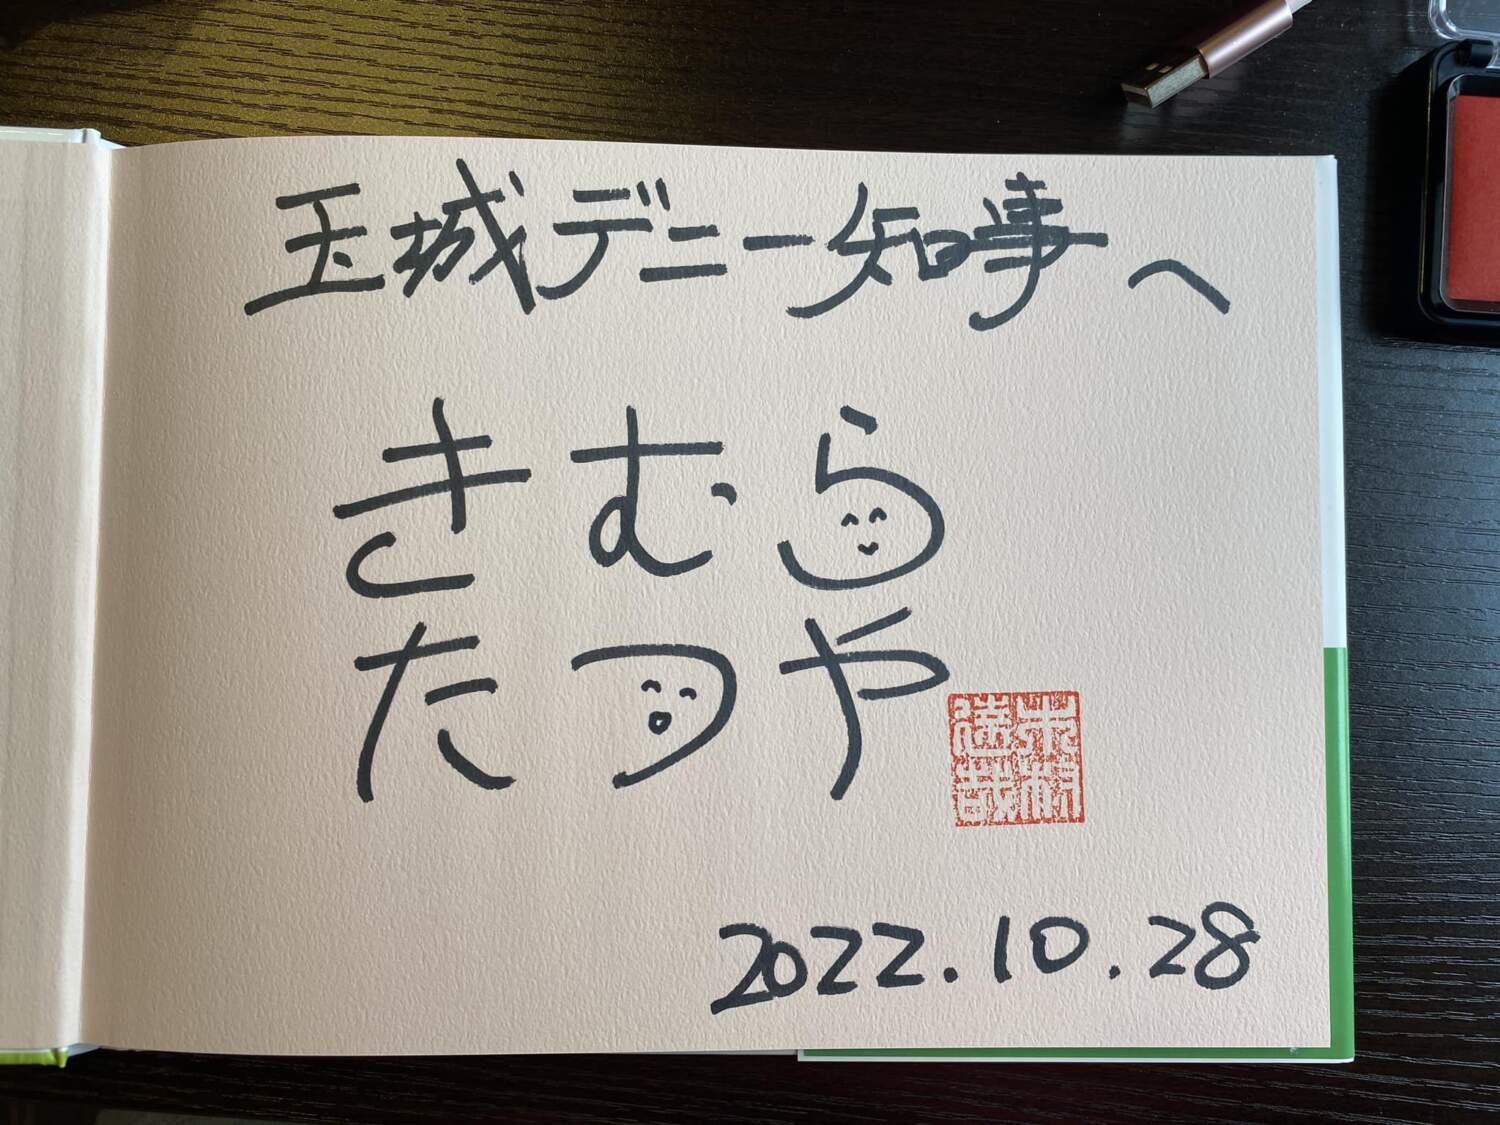 玉城デニー知事へ
きむら
たつや
木村
達哉
2022.10.28